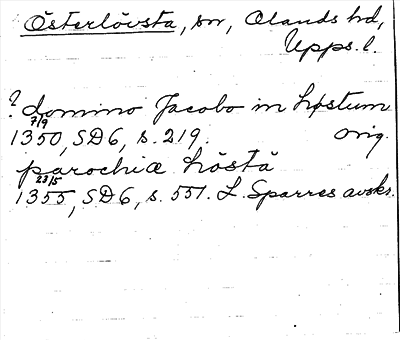 Österlövsta, sn, Olands hd,
Upps. l.
? domino Jacobo in Løstum
7/9
1350, SD6, s. 219. orig.
parochia Löstä
23/5
1355, SD6, s. 551. L. Sparres avskr.